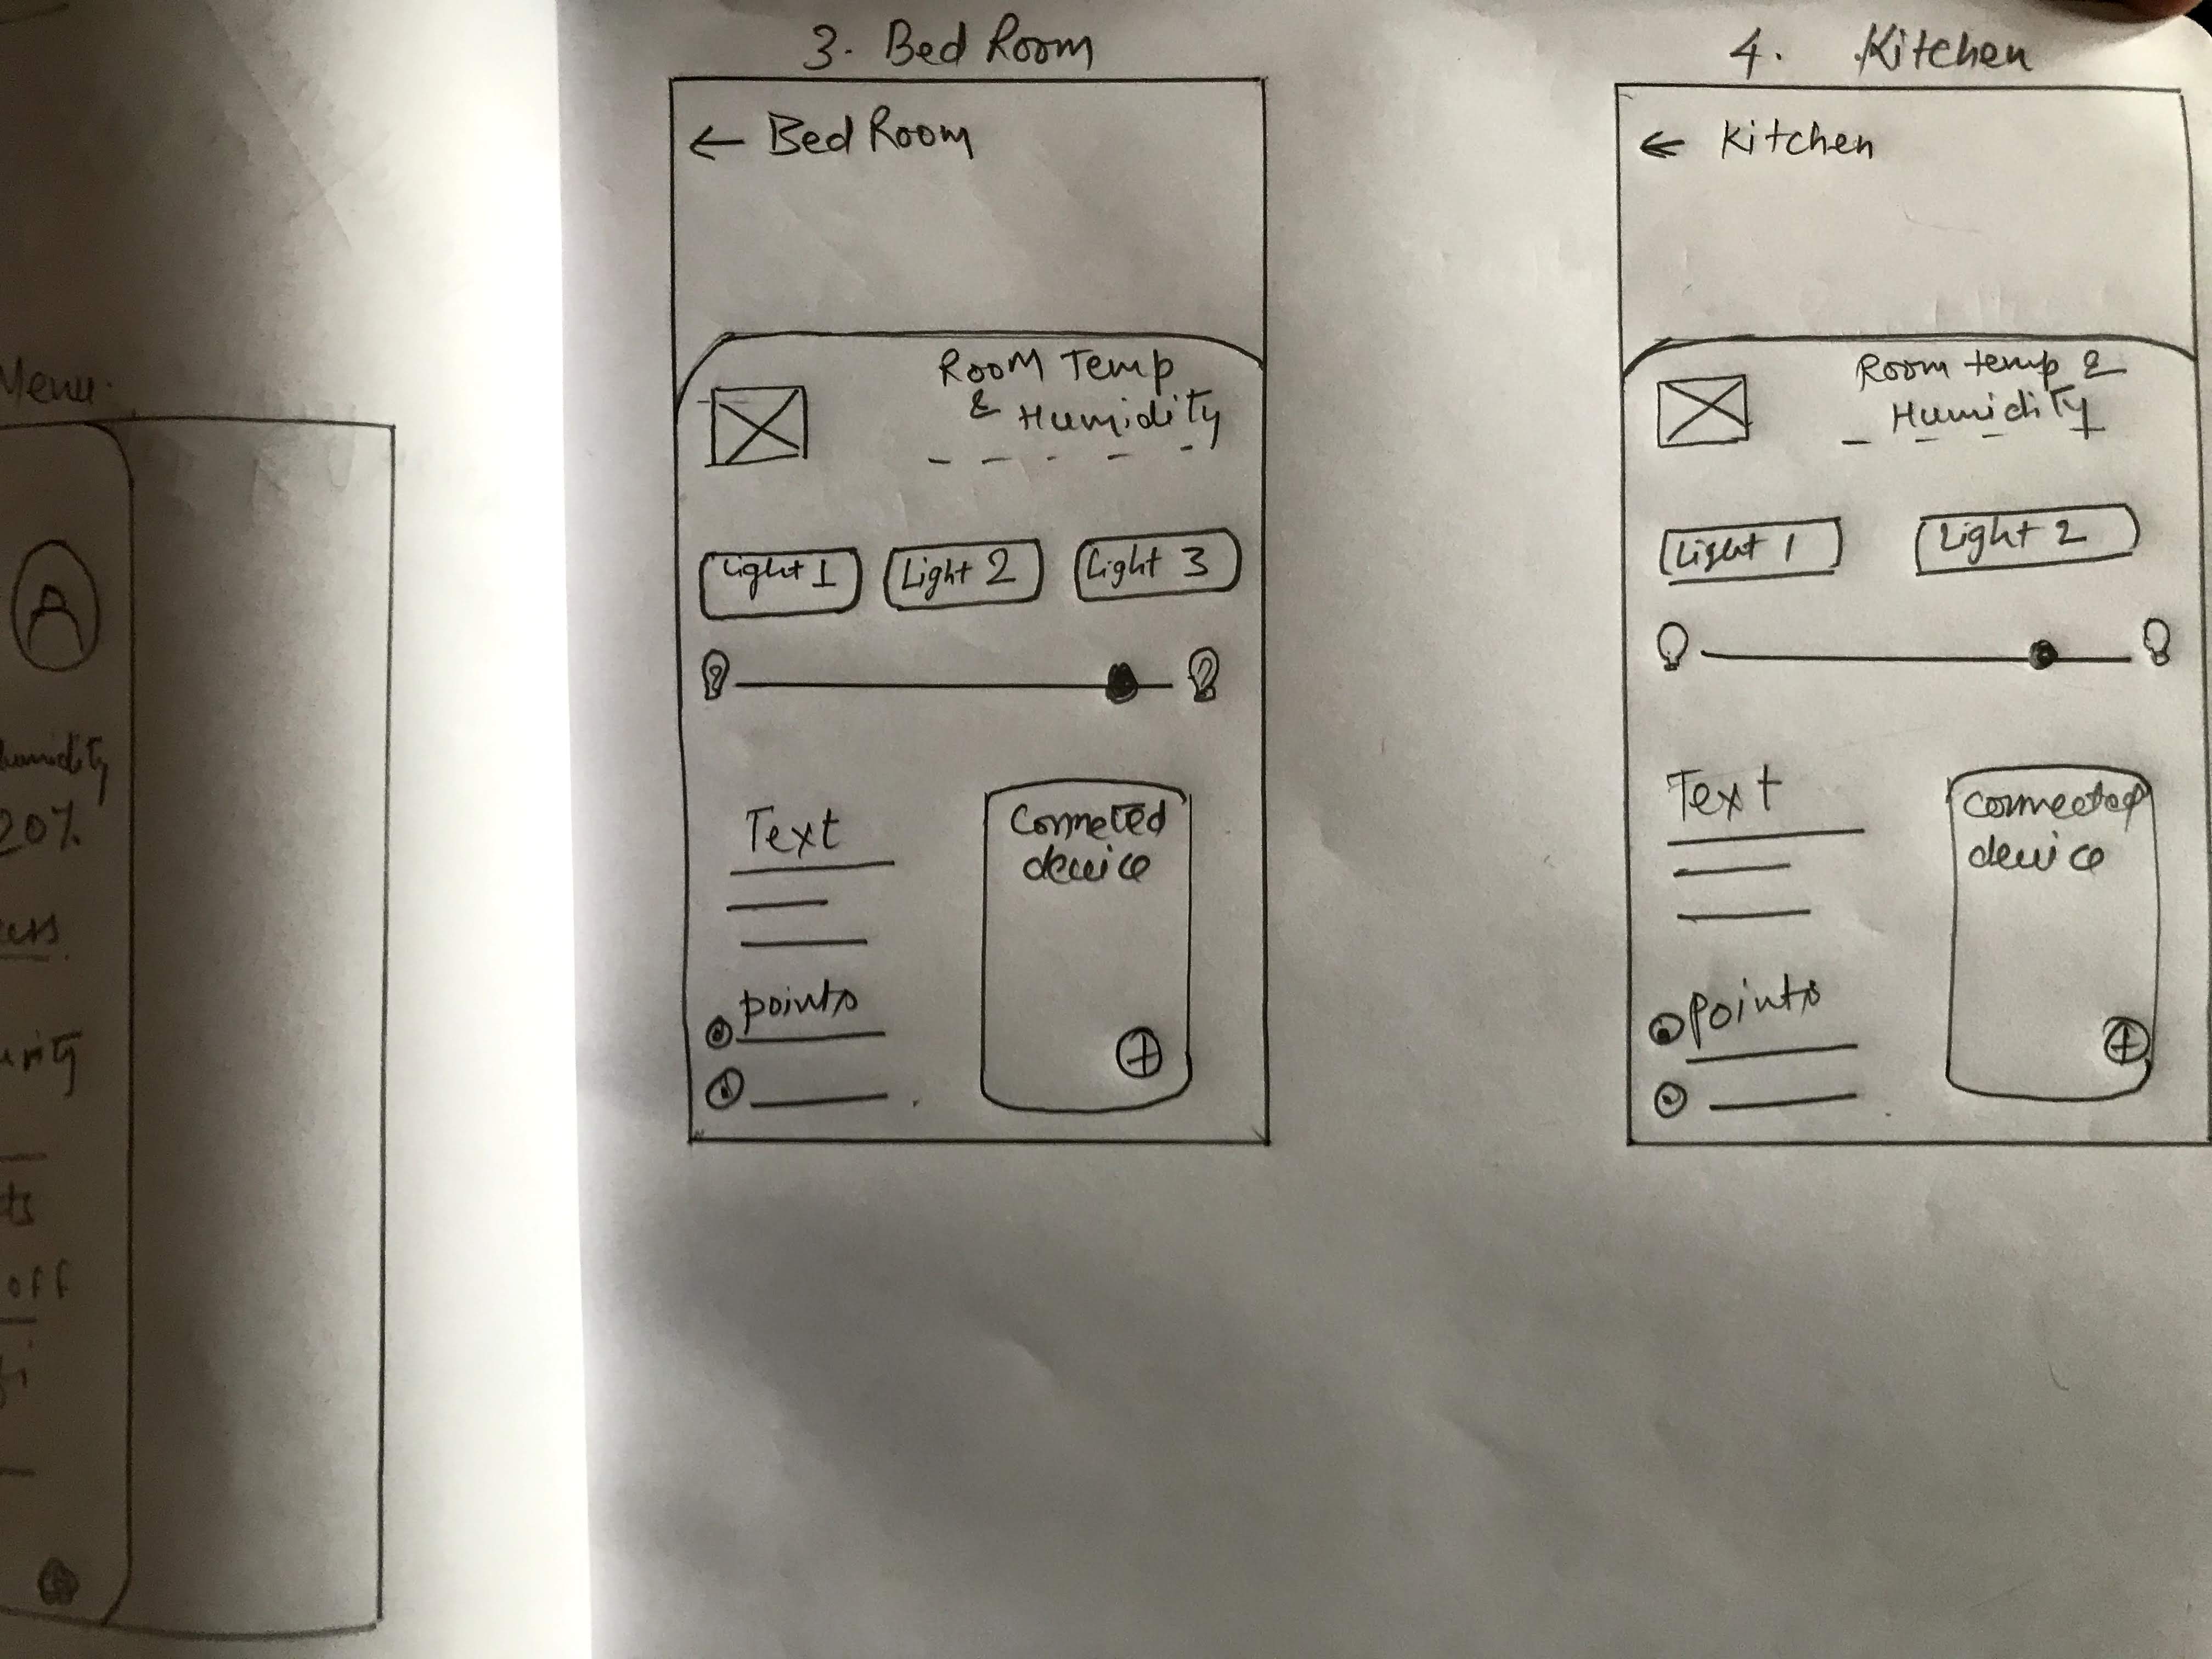 Menu.
A
Humidity
20%
off
3. Bed Room
← Bed Room
Room Temp
& Humidity
Light 1
Light 2
Light 3
Text
Points
Connected
device
+
4. Kitchen
← Kitchen
Room temp &
Humidity
Light 1
Light 2
Text
Points
Connected
device
+